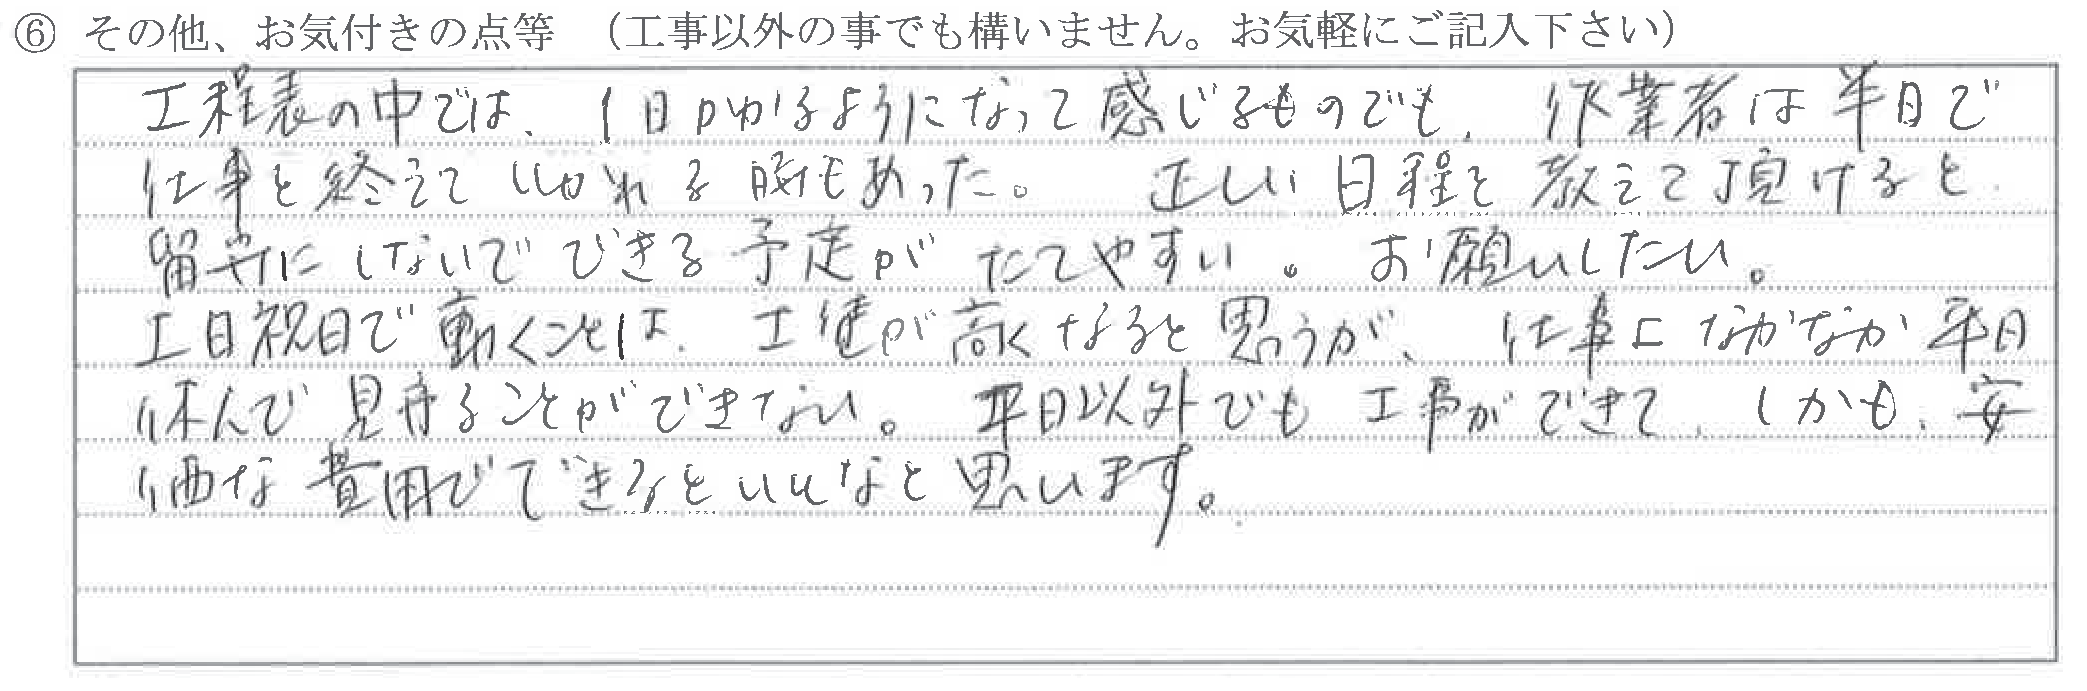 ⑥ その他、お気付きの点等 （工事以外の事でも構いません。お気軽にご記入下さい）
工程表の中では、1日かかるようになって感じるものでも、作業者は半日で
仕事を終えていかれる時もあった。 正しい日程を教えて頂けると
留守にしないでできる予定がたてやすい。お願いしたい。
土日祝日で動くことは、工賃が高くなると思うが、仕事になかなか平日
休んで見守ることができない。平日以外でも工事ができて、しかも、安
価な費用でできるといいなと思います。